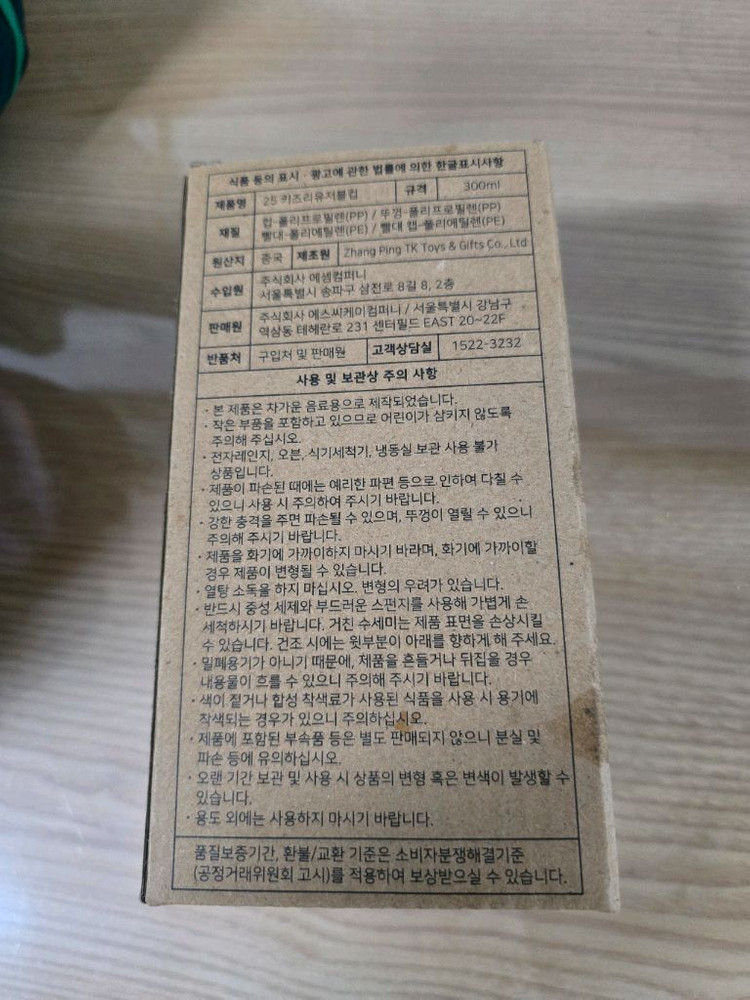 식품 등의 표시 · 광고에 관한 법률에 의한 한글표시사항
제품명 25 키즈리유저블컵 규격 300ml
재질 컵-폴리프로필렌(PP) / 뚜껑-폴리프로필렌(PP)
빨대-폴리에틸렌(PE) / 빨대 캡-폴리에틸렌(PE)
원산지 중국 제조원 Zhang Ping TK Toys & Gifts Co., Ltd
수입원 주식회사 에셈컴퍼니
서울특별시 송파구 삼전로 8길 8, 2층
판매원 주식회사 에스씨케이컴퍼니 / 서울특별시 강남구
역삼동 테헤란로 231 센터필드 EAST 20~22F
반품처 구입처 및 판매원 고객상담실 1522-3232
사용 및 보관상 주의 사항
· 본 제품은 차가운 음료용으로 제작되었습니다.
· 작은 부품을 포함하고 있으므로 어린이가 삼키지 않도록
주의해 주십시오.
· 전자레인지, 오븐, 식기세척기, 냉동실 보관 사용 불가
상품입니다.
· 제품이 파손된 때에는 예리한 파편 등으로 인하여 다칠 수
있으니 사용 시 주의하여 주시기 바랍니다.
· 강한 충격을 주면 파손될 수 있으며, 뚜껑이 열릴 수 있으니
주의해 주시기 바랍니다.
· 제품을 화기에 가까이하지 마시기 바라며, 화기에 가까이할
경우 제품이 변형될 수 있습니다.
· 열탕 소독을 하지 마십시오. 변형의 우려가 있습니다.
· 반드시 중성 세제와 부드러운 스펀지를 사용해 가볍게 손
세척하시기 바랍니다. 거친 수세미는 제품 표면을 손상시킬
수 있습니다. 건조 시에는 윗부분이 아래를 향하게 해 주세요.
· 밀폐용기가 아니기 때문에, 제품을 흔들거나 뒤집을 경우
내용물이 흐를 수 있으니 주의해 주시기 바랍니다.
· 색이 짙거나 합성 착색료가 사용된 식품을 사용 시 용기에
착색되는 경우가 있으니 주의하십시오.
· 제품에 포함된 부속품 등은 별도 판매되지 않으니 분실 및
파손 등에 유의하십시오.
· 오랜 기간 보관 및 사용 시 상품의 변형 혹은 변색이 발생할 수
있습니다.
· 용도 외에는 사용하지 마시기 바랍니다.
품질보증기간, 환불/교환 기준은 소비자분쟁해결기준
(공정거래위원회 고시)를 적용하여 보상받으실 수 있습니다.